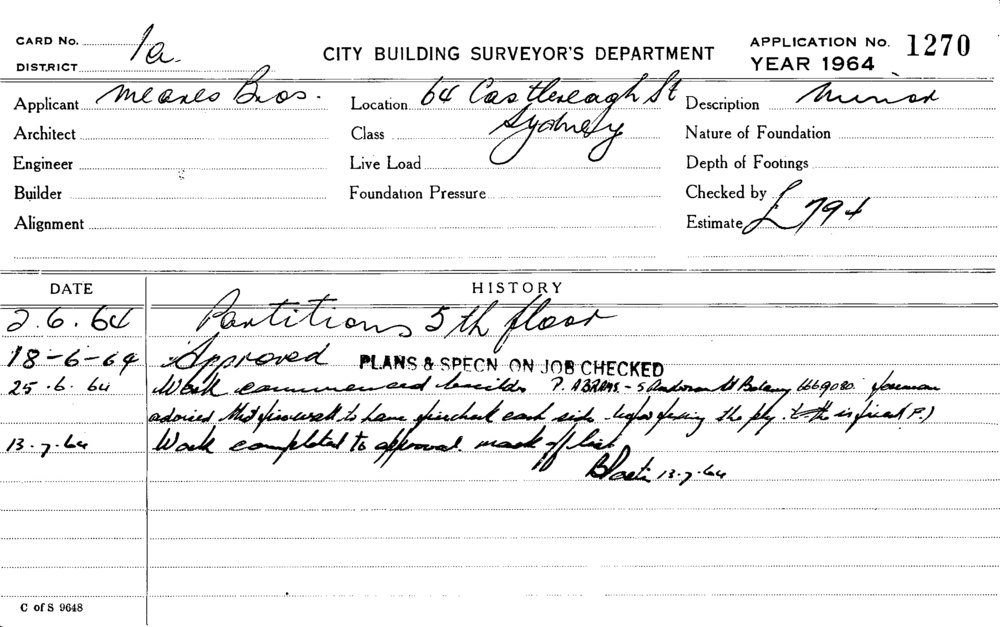 CARD No. 1a.
DISTRICT
CITY BUILDING SURVEYOR'S DEPARTMENT
APPLICATION No. 1270
YEAR 1964
Applicant Meares Bros.
Location 64 Castlereagh St
Sydney
Description Minor
Architect
Class
Nature of Foundation
Engineer
Live Load
Depth of Footings
Builder
Foundation Pressure
Checked by
Alignment
Estimate £794
DATE HISTORY
2.6.64 Partitions 5th floor
18-6-64 Approved PLANS & SPECN. ON JOB CHECKED
25.6.64 Work commenced P. ABRAMS - 5 St Botany 6669080. foreman
advised that to have each side the ply. (P.)
13.7.64 Work completed to approval. mark off list
13.7.64
C of S 9648